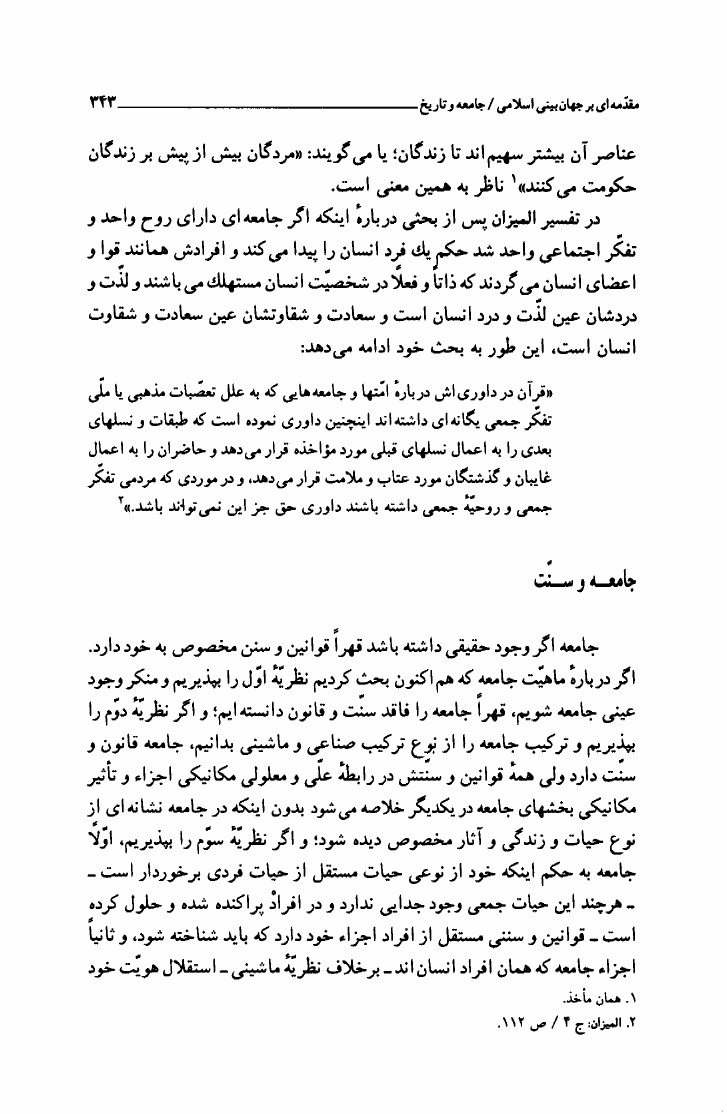 مقدّمه‌ای بر جهان‌بینی اسلامی / جامعه و تاریخ ۳۴۳
عناصر آن بیشتر سهیم‌اند تا زندگان؛ یا می‌گویند: «مردگان بیش از پیش بر زندگان
حکومت می‌کنند»۱ ناظر به همین معنی است.
در تفسیر المیزان پس از بحثی دربارهٔ اینکه اگر جامعه‌ای دارای روح واحد و
تفکّر اجتماعی واحد شد حکم یك فرد انسان را پیدا می‌کند و افرادش همانند قوا و
اعضای انسان می‌گردند که ذاتاً و فعلاً در شخصیّت انسان مستهلك می‌باشند و لذّت و
دردشان عین لذّت و درد انسان است و سعادت و شقاوتشان عین سعادت و شقاوت
انسان است، این طور به بحث خود ادامه می‌دهد:
«قرآن در داوری‌اش دربارهٔ امّتها و جامعه‌هایی که به علل تعصّبات مذهبی یا ملّی
تفکّر جمعی یگانه‌ای داشته‌اند اینچنین داوری نموده است که طبقات و نسلهای
بعدی را به اعمال نسلهای قبلی مورد مؤاخذه قرار می‌دهد و حاضران را به اعمال
غایبان و گذشتگان مورد عتاب و ملامت قرار می‌دهد، و در موردی که مردمی تفکّر
جمعی و روحیّهٔ جمعی داشته باشند داوری حق جز این نمی‌تواند باشد.»۲
جامعــه و ســنّت
جامعه اگر وجود حقیقی داشته باشد قهراً قوانین و سنن مخصوص به خود دارد.
اگر دربارهٔ ماهیّت جامعه که هم‌اکنون بحث کردیم نظریّهٔ اوّل را بپذیریم و منکر وجود
عینی جامعه شویم، قهراً جامعه را فاقد سنّت و قانون دانسته‌ایم؛ و اگر نظریّهٔ دوّم را
بپذیریم و ترکیب جامعه را از نوع ترکیب صناعی و ماشینی بدانیم، جامعه قانون و
سنّت دارد ولی همهٔ قوانین و سنّتش در رابطهٔ علّی و معلولی مکانیکی اجزاء و تأثیر
مکانیکی بخشهای جامعه در یکدیگر خلاصه می‌شود بدون اینکه در جامعه نشانه‌ای از
نوع حیات و زندگی و آثار مخصوص دیده شود؛ و اگر نظریّهٔ سوّم را بپذیریم، اوّلاً
جامعه به حکم اینکه خود از نوعی حیات مستقل از حیات فردی برخوردار است ـ
ـ هرچند این حیات جمعی وجود جدایی ندارد و در افرادْ پراکنده شده و حلول کرده
است ـ قوانین و سننی مستقل از افراد اجزاء خود دارد که باید شناخته شود، و ثانیاً
اجزاء جامعه که همان افراد انسان‌اند ـ برخلاف نظریّهٔ ماشینی ـ استقلال هویّت خود
۱. همان مأخذ.
۲. المیزان: ج ۴ / ص ۱۱۲.